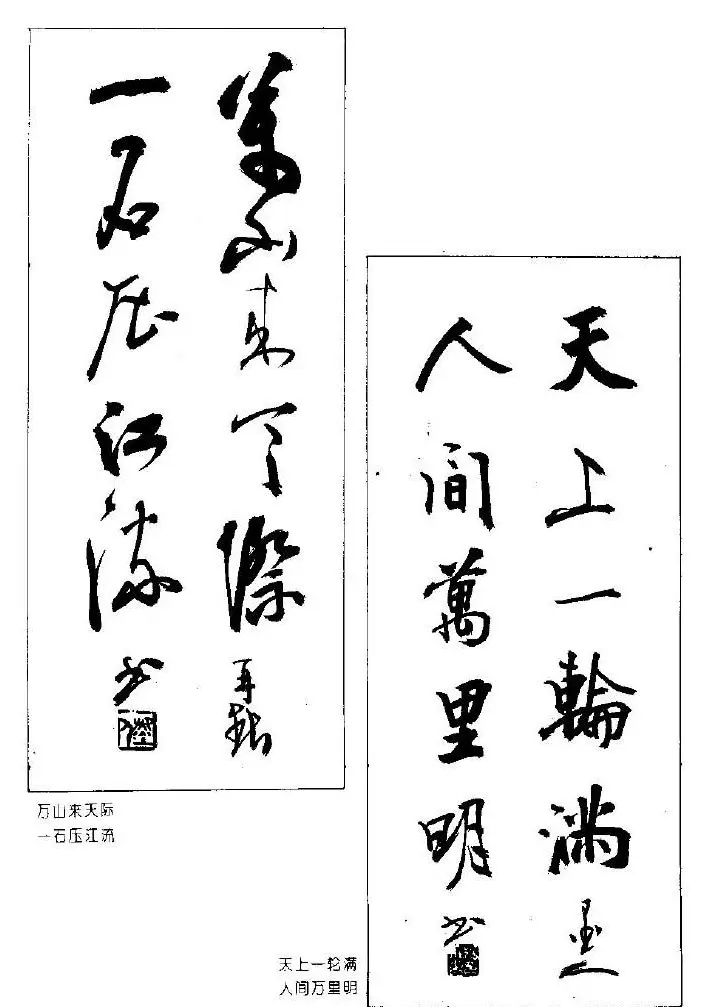 萬山来天際
一石压江流
书
万山来天际
一石压江流
天上一輪満
人间萬里明
书
天上一轮满
人间万里明